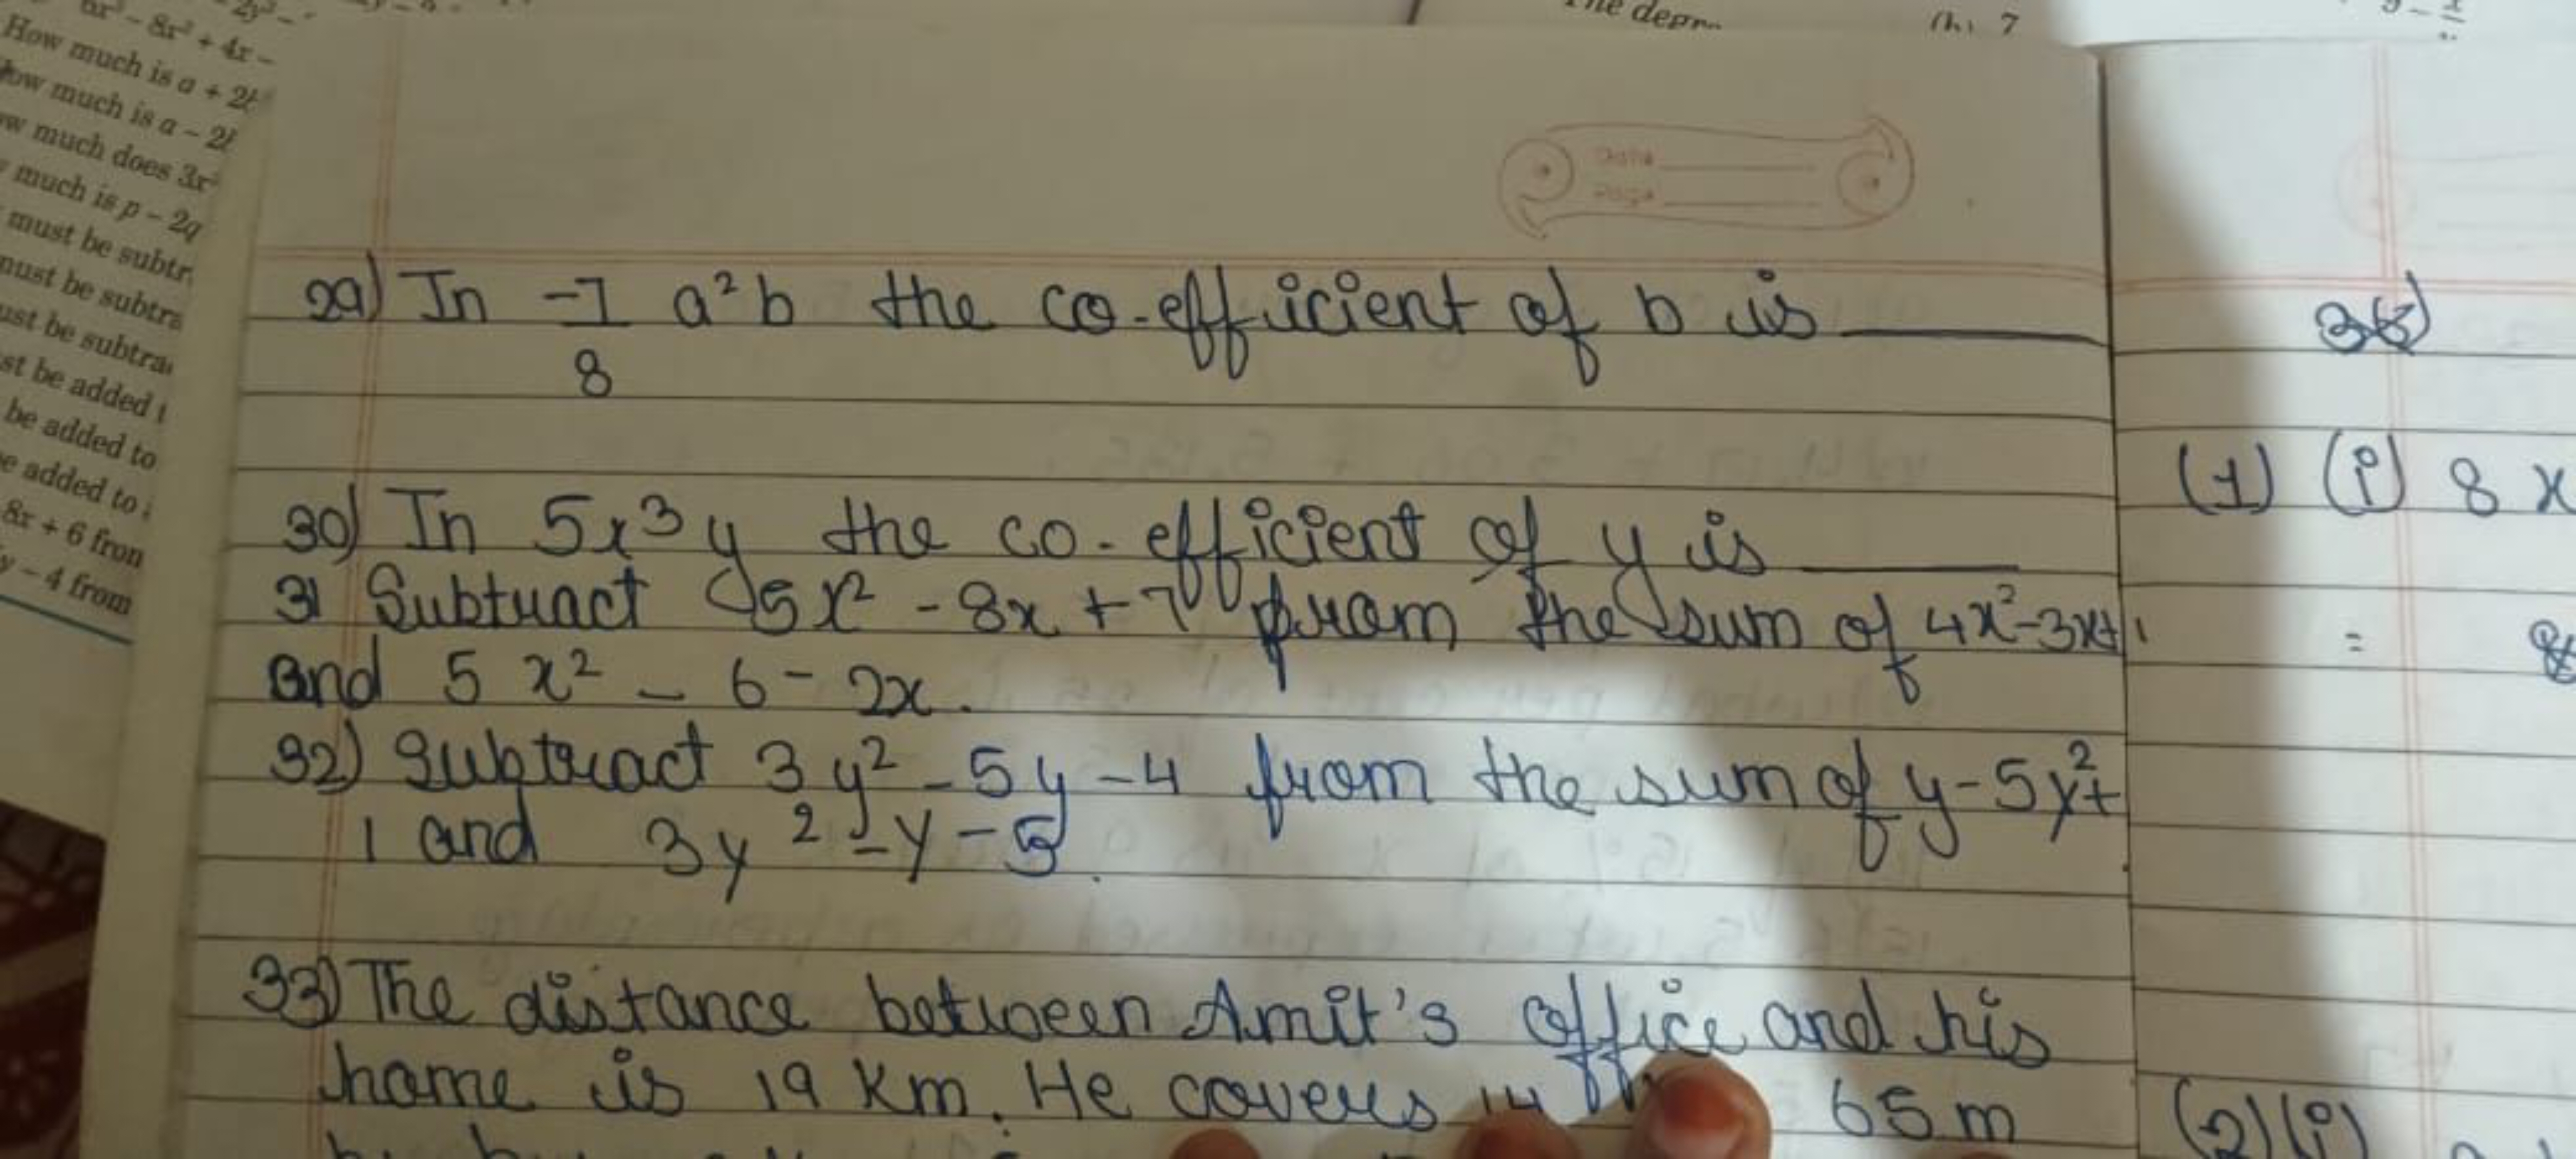 6x³ - 8x² + 4x -
How much is a + 2b
How much is a - 2b
much does 3x²
much is p - 2q
must be subtr
must be subtra
ust be subtra
st be added t
be added to
e added to
8x + 6 from
y - 4 from
The degre
(b) 7
Date
Page
29) In -1/8 a²b the co-efficient of b is ______
30) In 5x³y the co-efficient of y is ______
31 Subtract 5x² - 8x + 7 from the sum of 4x²-3x+1
and 5x² - 6 - 2x.
32) Subtract 3y² - 5y - 4 from the sum of y-5y²+
1 and 3y² - y - 5.
33) The distance between Amit's office and his
home is 19 km. He covers 14 65 m
(1) (i) 8 x
=
(2) (i)